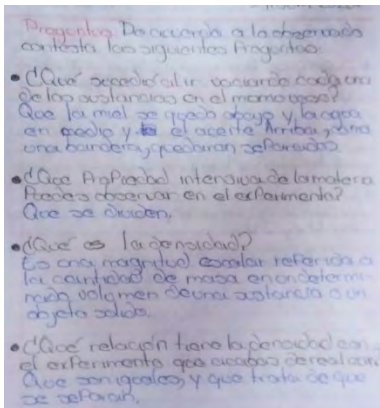 Preguntas. De acuerdo a lo observado
contesta las siguientes Preguntas.
• ¿Qué sucedió al ir vaciando cada una
de las sustancias en el mismo vaso?
Que la miel se quedo abajo y la agua
en medio y el aceite Arriba, como
una bandera, quedaron separados.
• ¿Que Propiedad intensiva de la materia
Puedes observar en el experimento?
Que se dividen.
• ¿Qué es la densidad?
Es una magnitud escalar referida a
la cantidad de masa en un determi-
volumen de una sustancia o un
objeto solido.
• ¿Qué relación tiene la densidad con
el experimento que acabas de realizar
Que son iguales, y que trata de que
se separan.